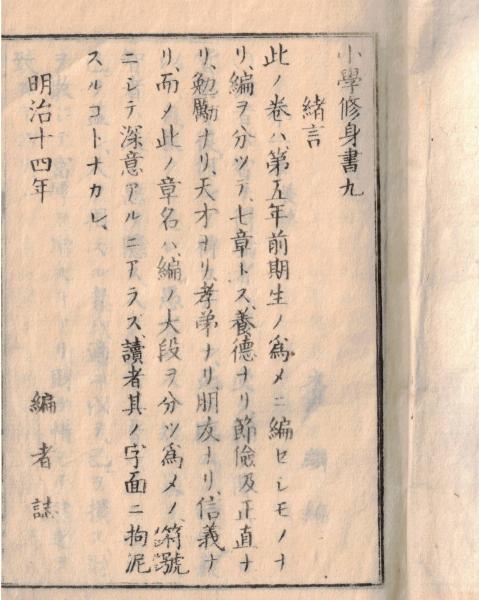 小學修身書九
緒言
此ノ卷ハ、第五年前期生ノ爲メニ編セシモノナ
リ、編ヲ分ツテ、七章トス、養德ナリ節儉及正直ナ
リ、勉勵ナリ、天才ナリ、孝弟ナリ朋友ナリ、信義ナ
リ、而ノ此ノ章名ハ、編ノ大段ヲ分ツ爲メノ符號
ニシテ深意アルニアラズ、讀者其ノ字面ニ拘泥
スルコトナカレ、
明治十四年
編者誌